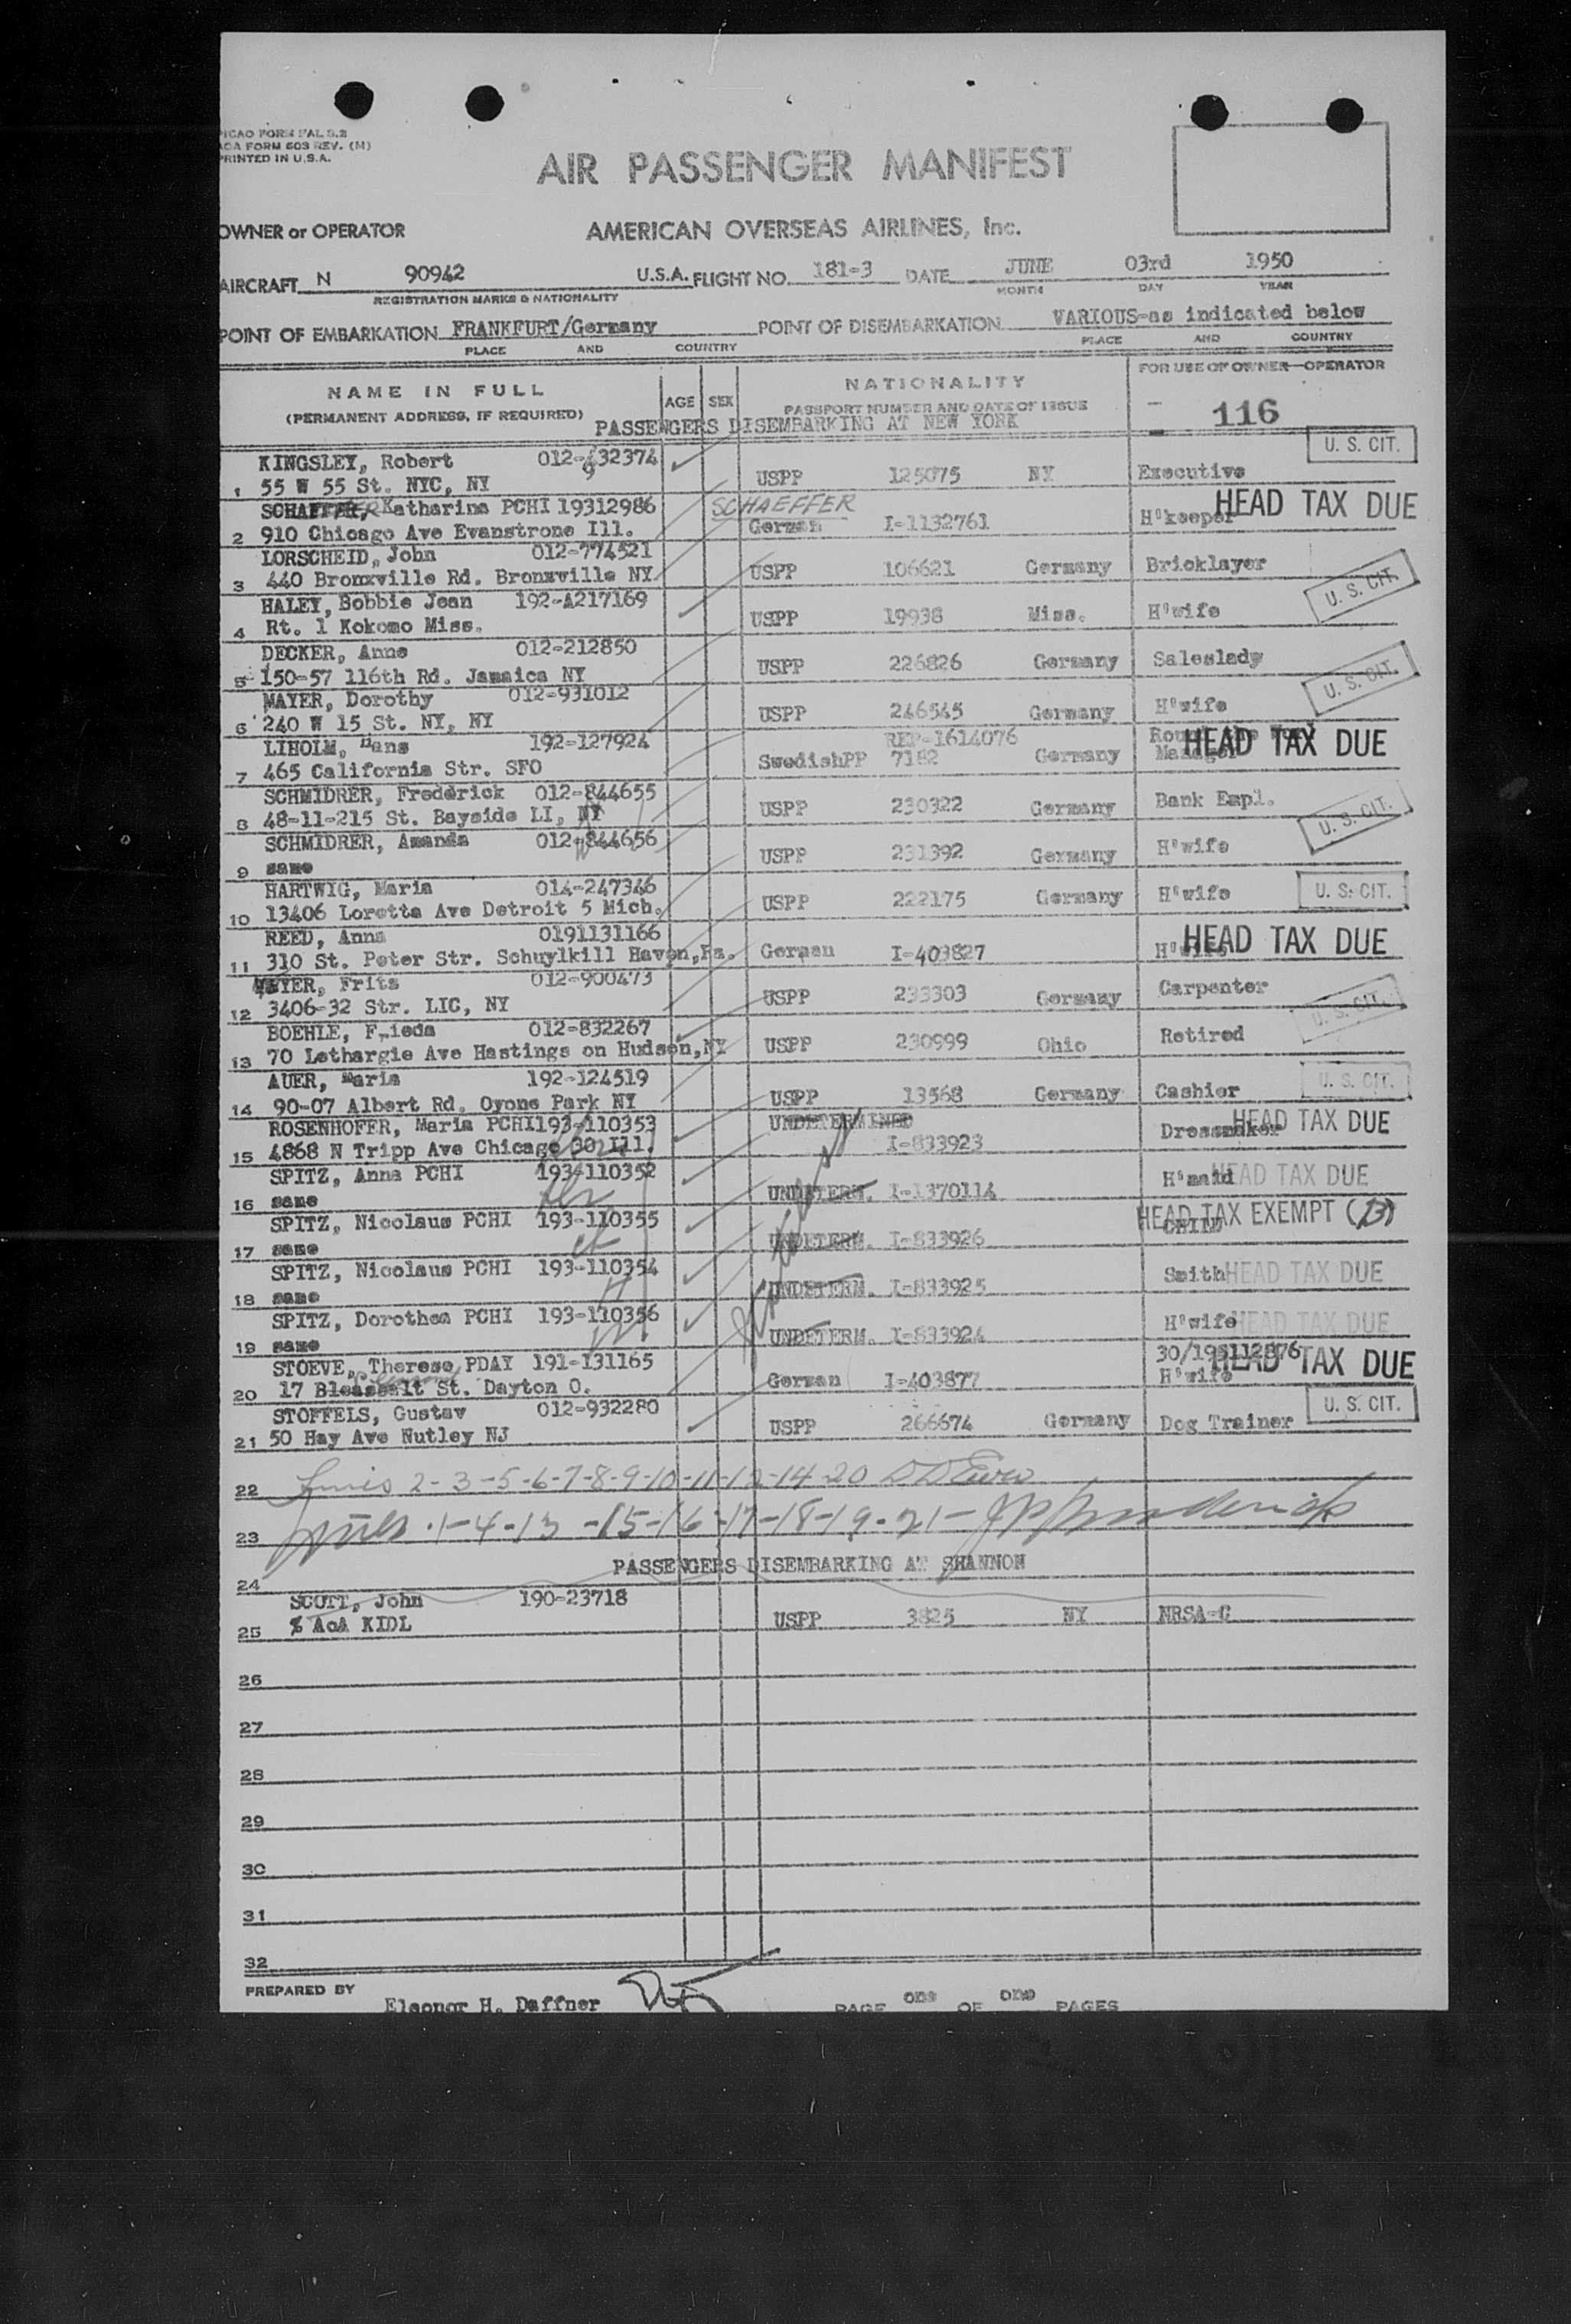 ICAO FORM FAL 5.2
AOA FORM 603 REV. (M)
PRINTED IN U.S.A.
AIR PASSENGER MANIFEST
OWNER or OPERATOR AMERICAN OVERSEAS AIRLINES, Inc.
AIRCRAFT N 90942 U.S.A. FLIGHT NO. 181-3 DATE JUNE 03rd 1950
REGISTRATION MARKS & NATIONALITY MONTH DAY YEAR
POINT OF EMBARKATION FRANKFURT/Germany POINT OF DISEMBARKATION VARIOUS-as indicated below
PLACE AND COUNTRY PLACE AND COUNTRY
NAME IN FULL AGE SEX NATIONALITY FOR USE OF OWNER—OPERATOR
(PERMANENT ADDRESS, IF REQUIRED) PASSPORT NUMBER AND DATE OF ISSUE 116
PASSENGERS DISEMBARKING AT NEW YORK
U. S. CIT.
KINGSLEY, Robert 012-432374
9
1 55 W 55 St. NYC, NY USPP 125075 NY Executive
SCHAEFFER, Katharina PCHI 19312986 SCHAEFFER HEAD TAX DUE
2 910 Chicago Ave Evanstrone Ill. German I-1132761 H'keeper
LORSCHEID, John 012-774521
3 440 Bronxville Rd. Bronxville NY USPP 106621 Germany Bricklayer U. S. CIT.
HALEY, Bobbie Jean 192-A217169
4 Rt. 1 Kokomo Miss. USPP 19938 Miss. H'wife
DECKER, Anne 012-212850
5 150-57 116th Rd. Jamaica NY USPP 226826 Germany Saleslady U. S. CIT.
MAYER, Dorothy 012-931012
6 240 W 15 St. NY, NY USPP 246545 Germany H'wife
LIHOLM, Hans 192-127924 REP-1614076 HEAD TAX DUE
7 465 California Str. SFO SwedishPP 7182 Germany Manager
SCHMIDRER, Frederick 012-844655
8 48-11-215 St. Bayside LI, NY USPP 230322 Germany Bank Empl. U. S. CIT.
SCHMIDRER, Amanda 012-844656
9 same USPP 231392 Germany H'wife
HARTWIG, Maria 014-247346
10 13406 Loretta Ave Detroit 5 Mich. USPP 222175 Germany H'wife U. S. CIT.
REED, Anna 0191131166 HEAD TAX DUE
11 310 St. Peter Str. Schuylkill Haven,Pa. German I-403827 H'wife
MEYER, Fritz 012-900473
12 3406-32 Str. LIC, NY USPP 233303 Germany Carpenter U. S. CIT.
BOEHLE, Frieda 012-832267
13 70 Lethargie Ave Hastings on Hudson,NY USPP 230999 Ohio Retired
AUER, Maria 192-124519 U. S. CIT.
14 90-07 Albert Rd. Oyone Park NY USPP 13568 Germany Cashier
ROSENHOFER, Maria PCHI193-110353 UNDETERMINED HEAD TAX DUE
15 4868 N Tripp Ave Chicago 30 Ill. I-833923 Dressmaker
SPITZ, Anna PCHI 193-110352 HEAD TAX DUE
16 same UNDETERM. I-1370114 H'maid
SPITZ, Nicolaus PCHI 193-110355 HEAD TAX EXEMPT (13)
17 same UNDETERM. I-833926 CHILD
SPITZ, Nicolaus PCHI 193-110354 HEAD TAX DUE
18 same UNDETERM. I-833925 Smith
SPITZ, Dorothea PCHI 193-110356 HEAD TAX DUE
19 same UNDETERM. I-833924 H'wife
STOEVE, Therese PDAY 191-131165 30/195112876 HEAD TAX DUE
20 17 St. Dayton O. German I-403877 H'wife
STOFFELS, Gustav 012-932280 U. S. CIT.
21 50 Hay Ave Nutley NJ USPP 266674 Germany Dog Trainer
22 2-3-5-6-7-8-9-10-11-12-14-20
23 1-4-13-15-16-17-18-19-21-
PASSENGERS DISEMBARKING AT SHANNON
24
SCOTT, John 190-23718
25 % AoA KIDL USPP 3825 NY NRSA-C
26
27
28
29
30
31
32
PREPARED BY Eleonor H. Daffner PAGE one OF one PAGES